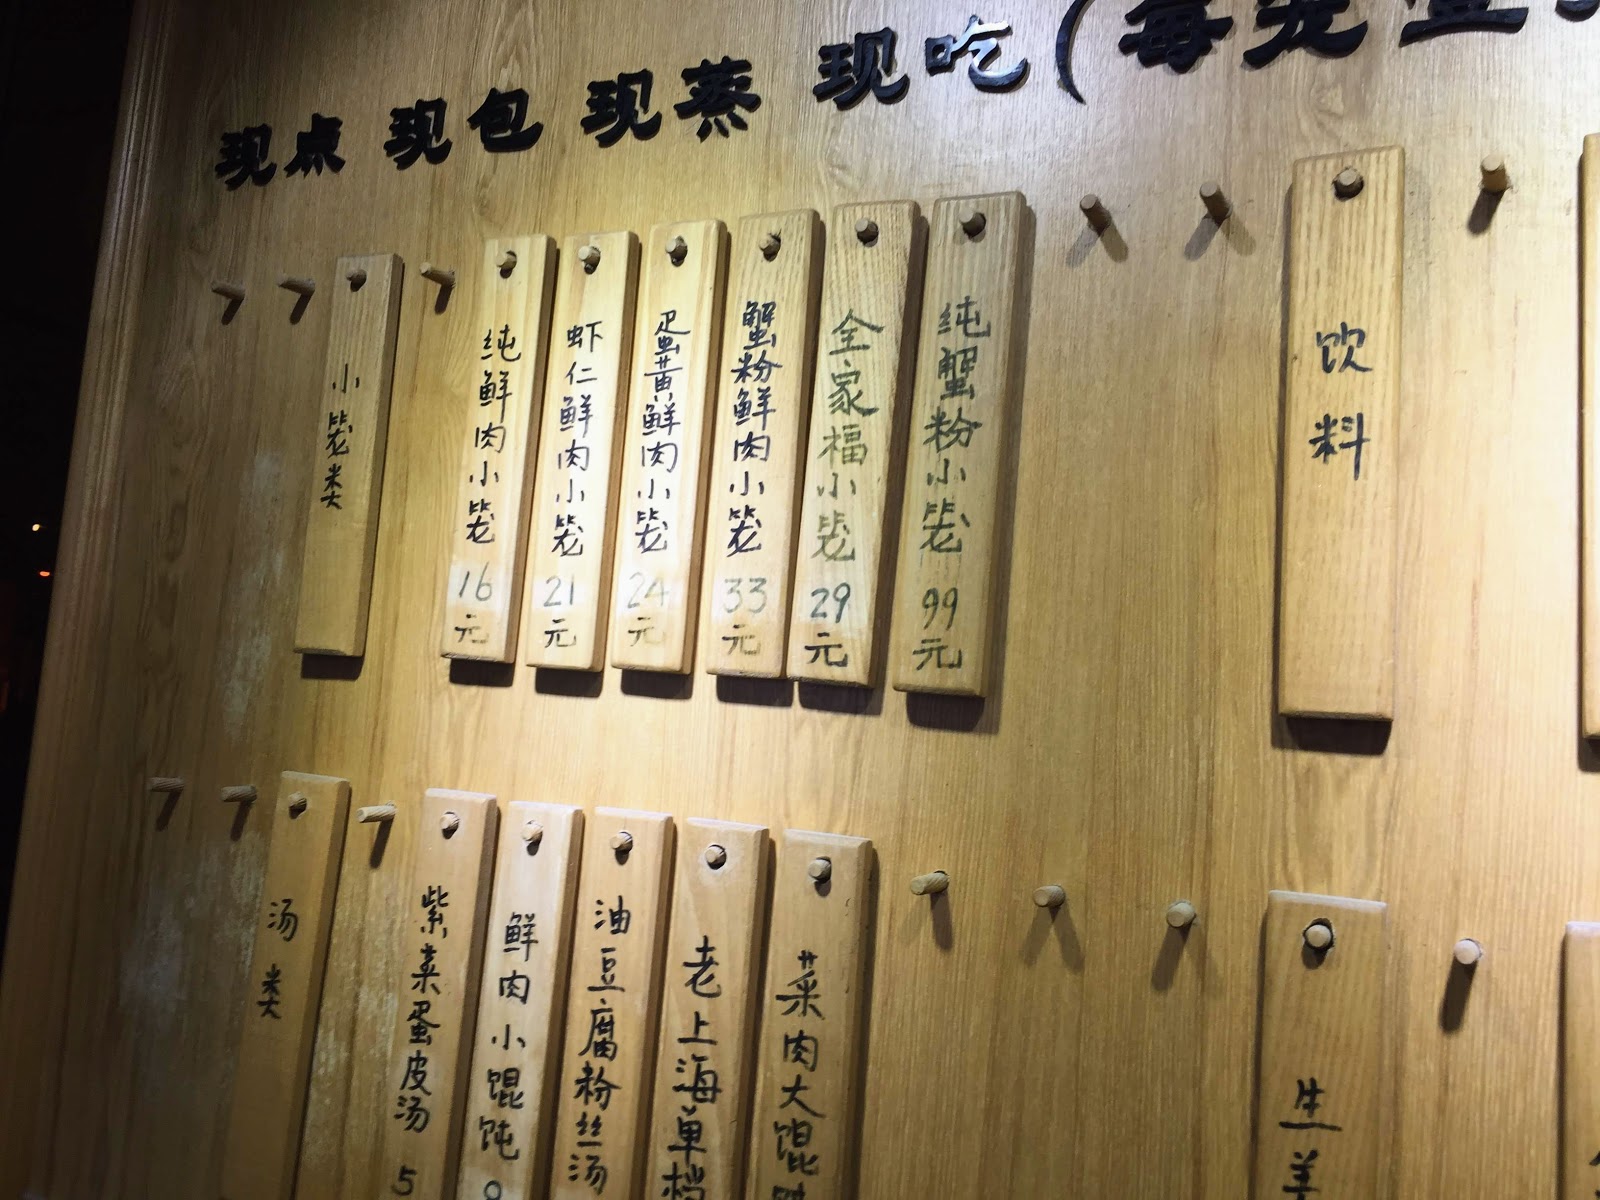 现点 现包 现蒸 现吃(每笼
小笼类
纯鲜肉小笼16元
虾仁鲜肉小笼21元
蛋黄鲜肉小笼24元
蟹粉鲜肉小笼33元
全家福小笼29元
纯蟹粉小笼99元
饮料
汤类
紫菜蛋皮汤5
鲜肉小馄饨
油豆腐粉丝汤
老上海单档
菜肉大馄
生姜